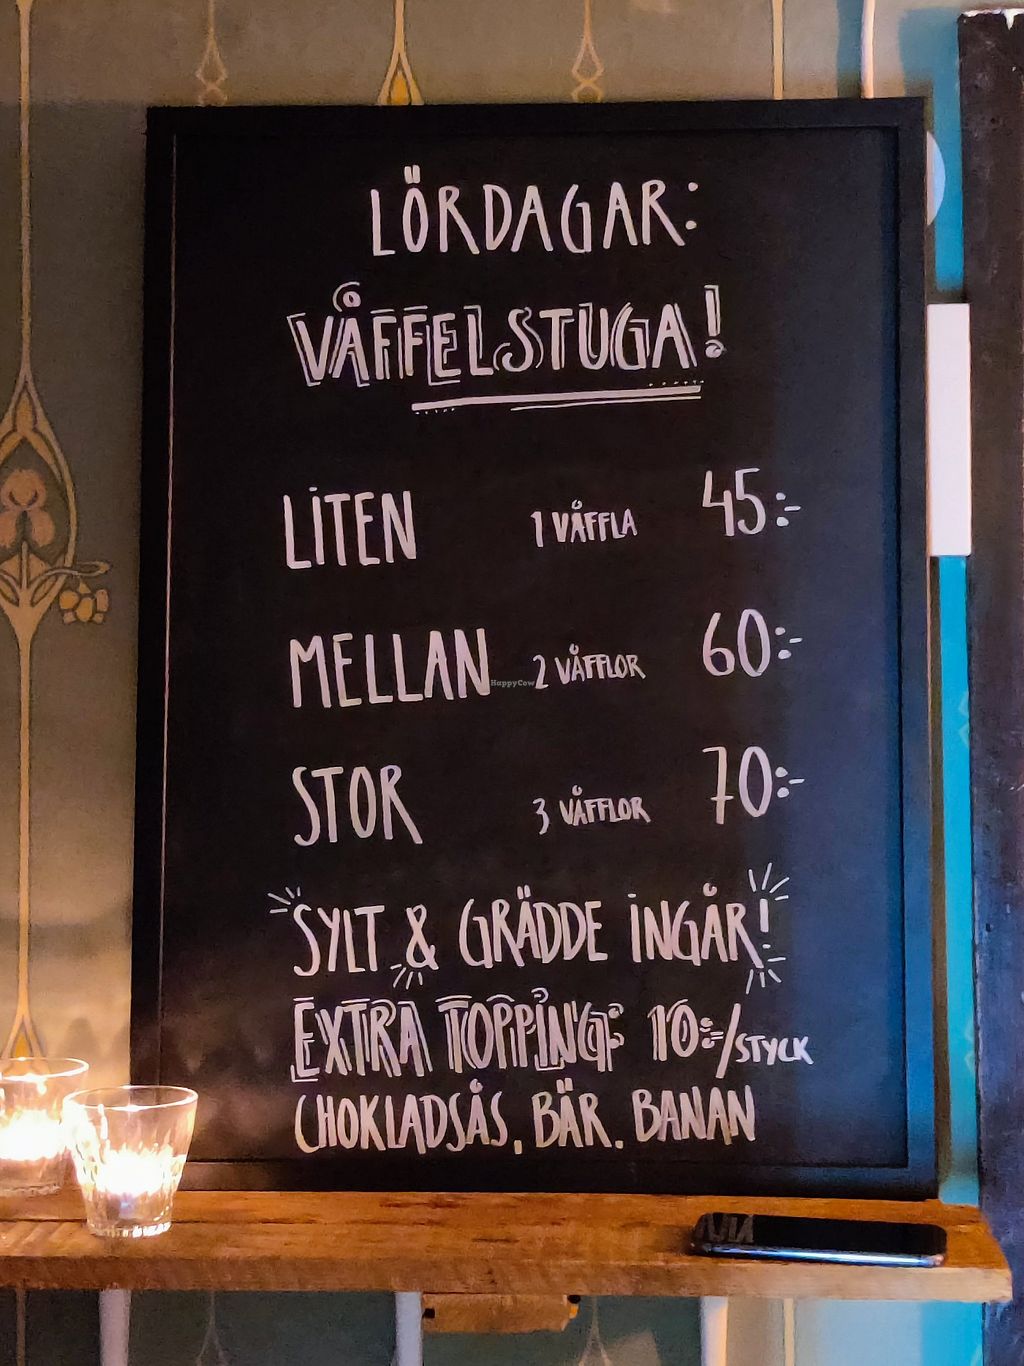 LÖRDAGAR:
VÅFFELSTUGA!
LITEN 1 VÅFFLA 45:-
MELLAN 2 VÅFFLOR 60:-
HappyCow
STOR 3 VÅFFLOR 70:-
SYLT & GRÄDDE INGÅR!
EXTRA TOPPING: 10:-/STYCK
CHOKLADSÅS, BÄR, BANAN